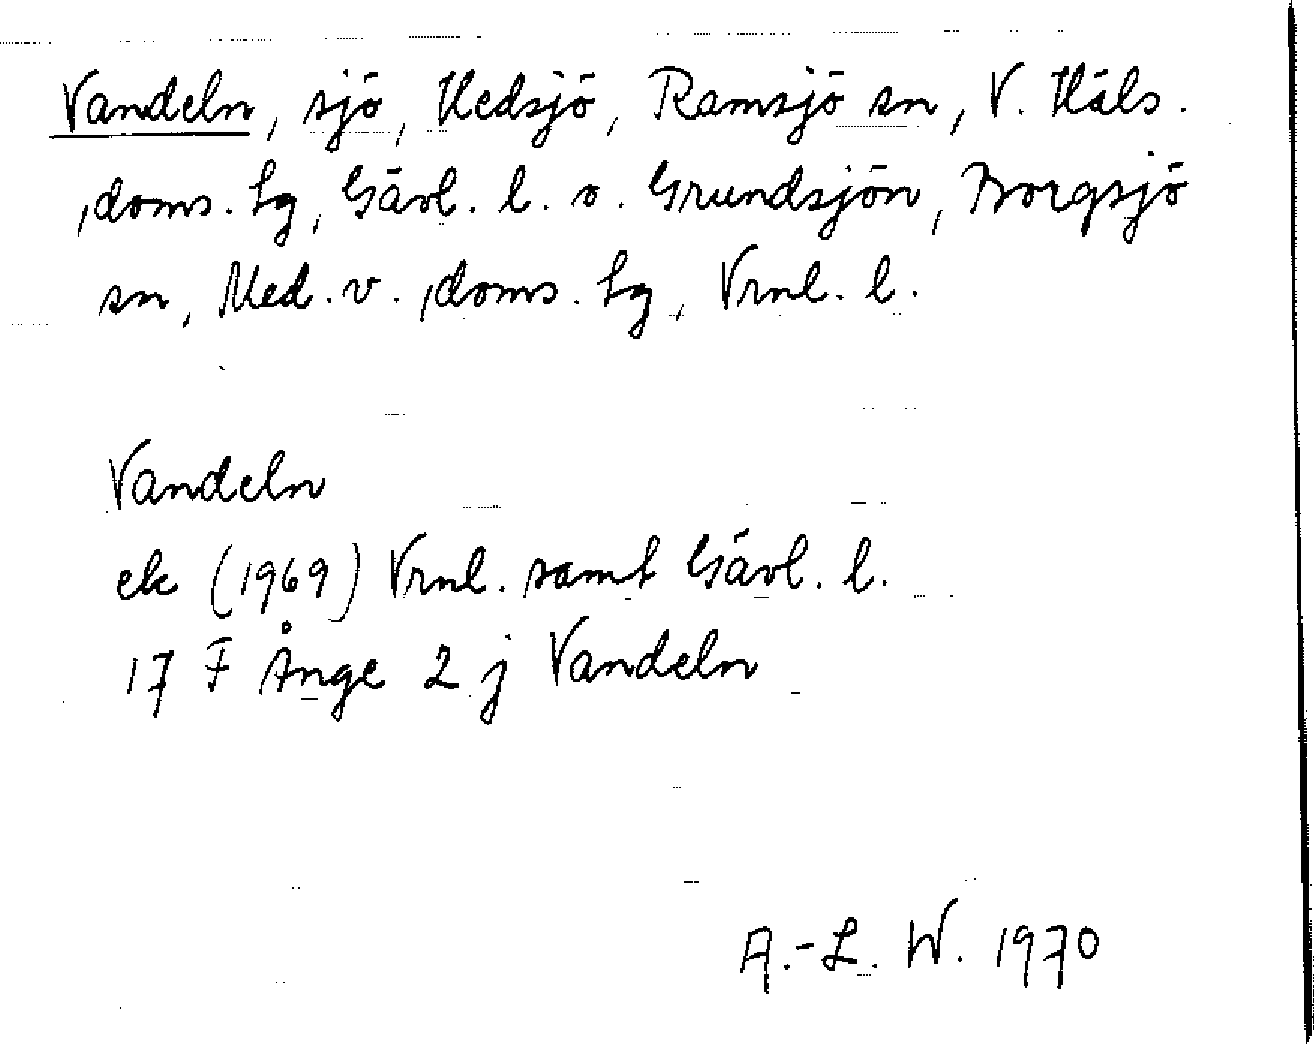 Vandeln, sjö, Hedsjö, Ramsjö sn, V. Häls.
doms. hg, Gävl. l. o. Grundsjön, Borgsjö
sn, Med. v. doms. hg, Vrnl. l.
Vandeln
ek (1969) Vrnl. samt Gävl. l.
17 F Ånge 2 j Vandeln
A.-L. W. 1970